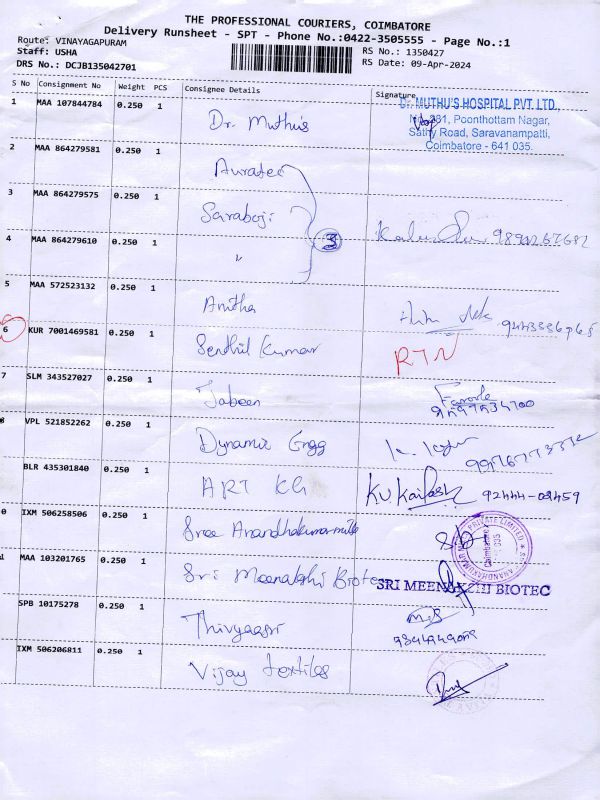 THE PROFESSIONAL COURIERS, COIMBATORE
Delivery Runsheet - SPT - Phone No.:0422-3505555 - Page No.:1
Route: VINAYAGAPURAM
Staff: USHA
RS No.: 1350427
DRS No.: DCJB135042701
RS Date: 09-Apr-2024
S No Consignment No Weight PCS Consignee Details Signature
1 MAA 107844784 0.250 1 Dr. Muthu's
Dr. MUTHU'S HOSPITAL PVT. LTD.,
Poonthottam Nagar,
Sathy Road, Saravanampatti,
Coimbatore - 641 035.
2 MAA 864279581 0.250 1 Auratec
3 MAA 864279575 0.250 1 Saraboji
3
4 MAA 864279610 0.250 1 "
5 MAA 572523132 0.250 1 Anitha
6 KUR 7001469581 0.250 1 Senthil Kumar RTN
7 SLM 343527027 0.250 1 Jabeen
8 VPL 521852262 0.250 1 Dynamic Engg
BLR 435301840 0.250 1 ART KG KV Kailash 92444-02459
0 IXM 506258506 0.250 1 Sree Anandhakumar mills
PRIVATE LIMITED
1 MAA 103201765 0.250 1 Sri Meenakshi Biotec SRI MEENAKZHI BIOTEC
SPB 10175278 0.250 1 Thivyaasri
IXM 506206811 0.250 1 Vijay textiles